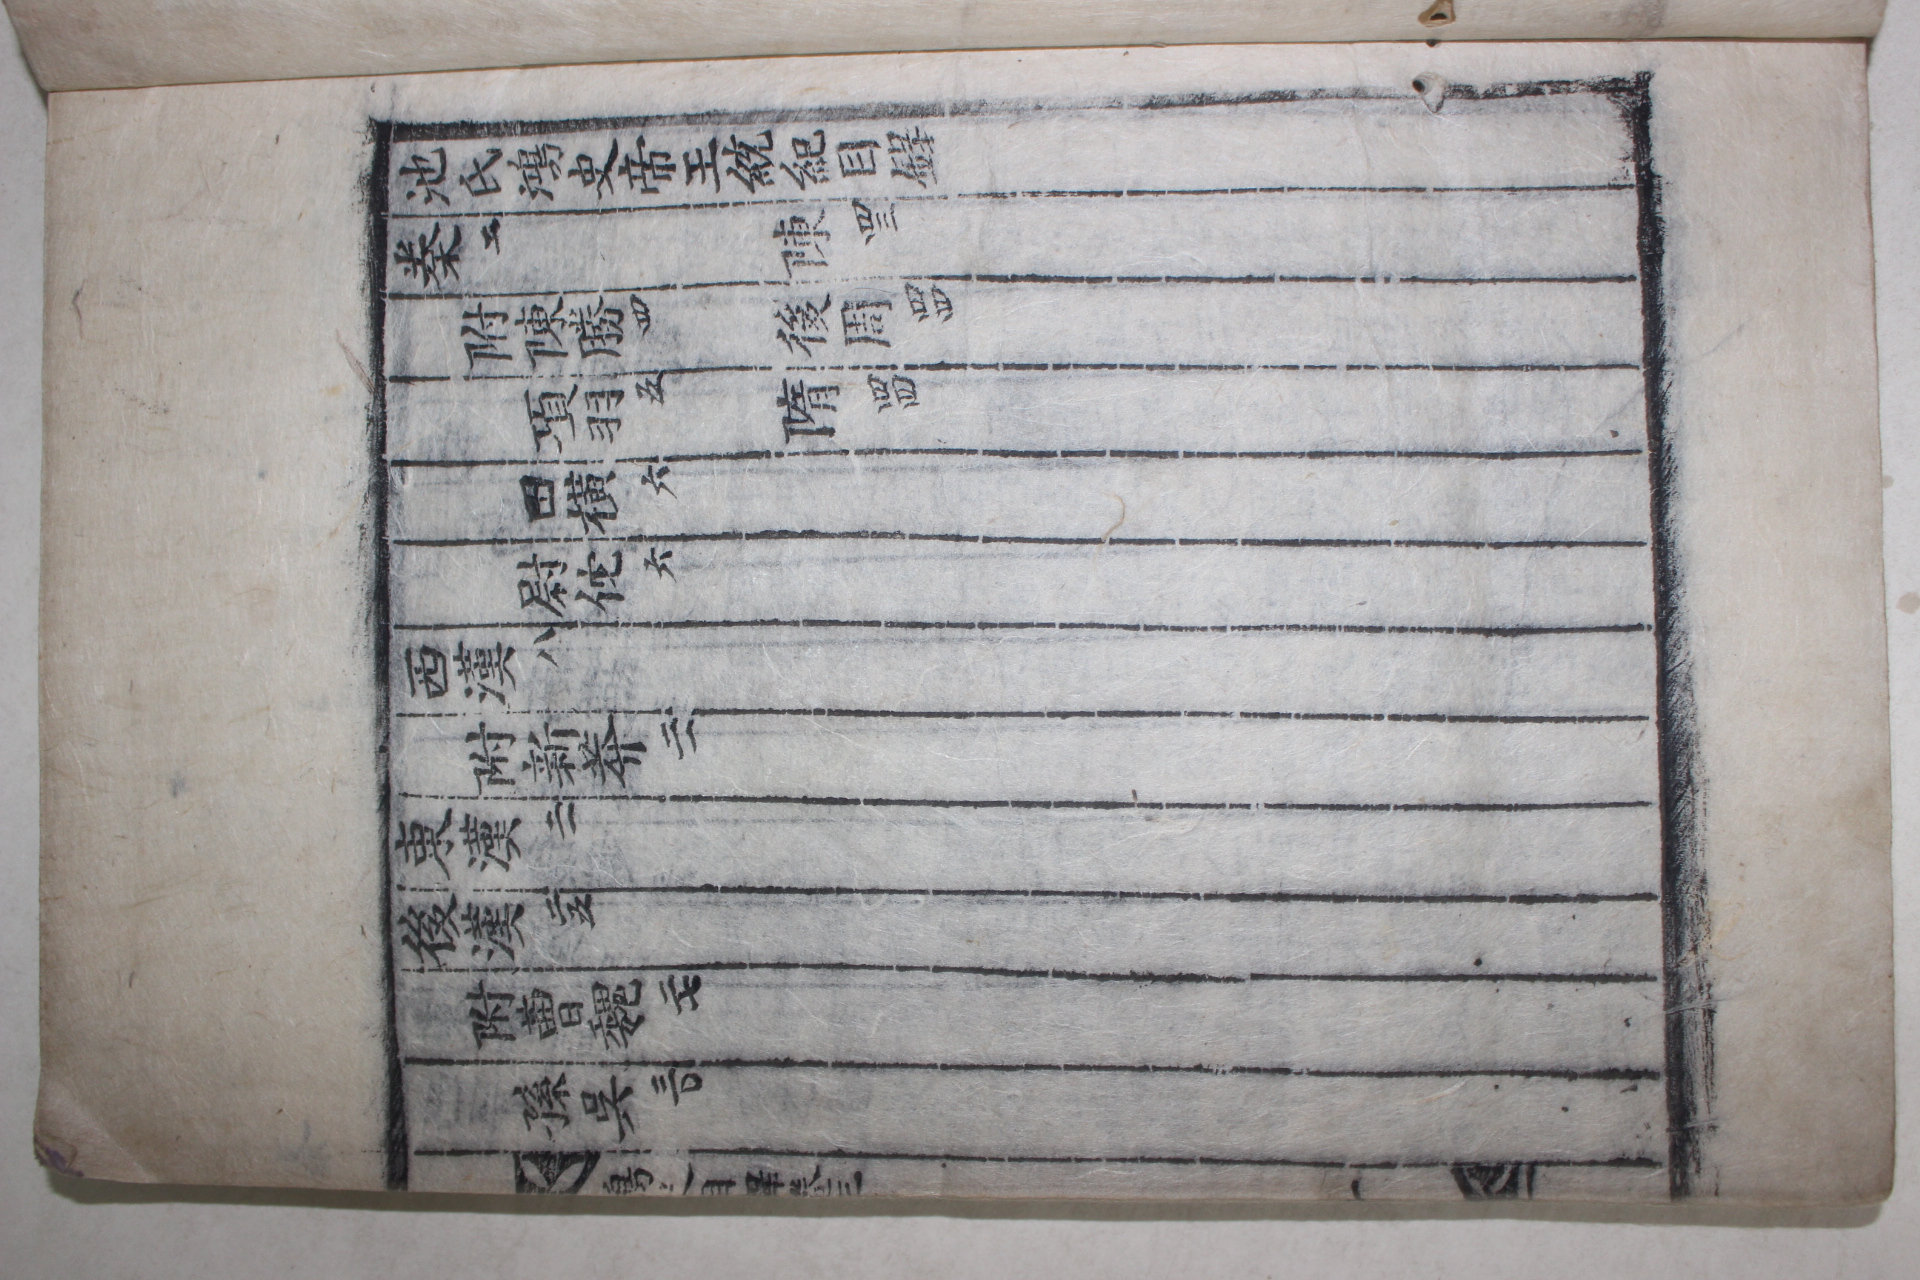 池氏鴻史帝王統紀目錄
秦 二 陳 四三
附陳勝 四 後周 四四
項羽 五 隋 四四
田橫 六
尉佗 六
西漢 八
附新莽 二一
東漢 二一
後漢 二五
附曹魏 二七
孫吳 三〇
鴻史目錄卷三